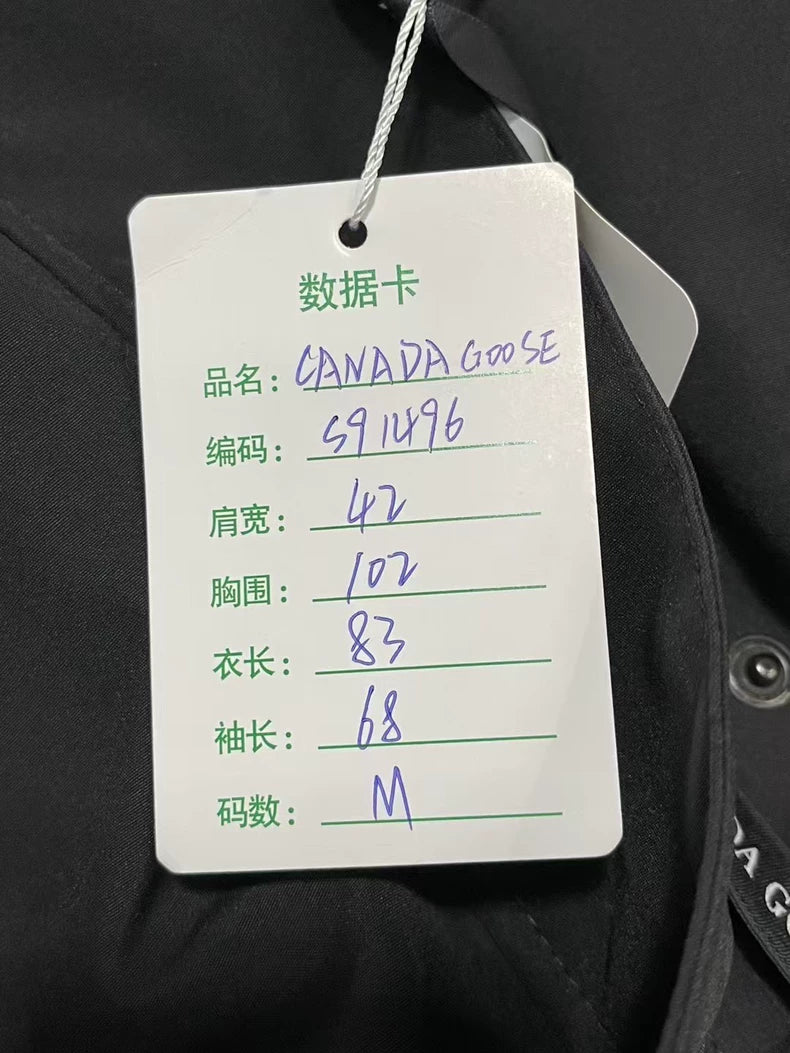 数据卡
品名：CANADA GOOSE
编码：S91496
肩宽：42
胸围：102
衣长：83
袖长：68
码数：M
DA GO